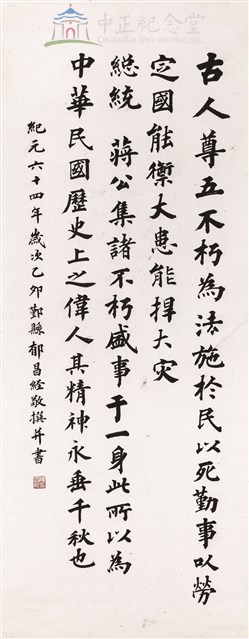 中正紀念堂
CHIANG KAI-SHEK MEMORIAL HALL
古人尊五不朽為法施於民以死勤事以勞
定國能禦大患能捍大灾
總統 蔣公集諸不朽盛事于一身此所以為
中華民國歷史上之偉人其精神永垂千秋也
紀元六十四年歲次乙卯鄞縣郁昌經敬撰并書